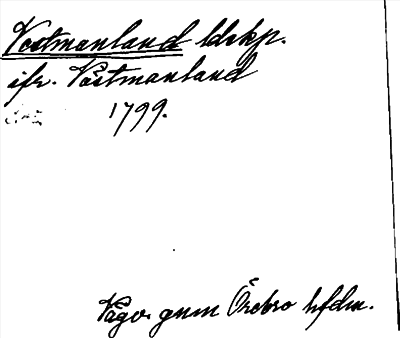 Vestmanland ldskp.
jfr. Västmanland
1799.
Vägv. gnm Örebro hfdm.